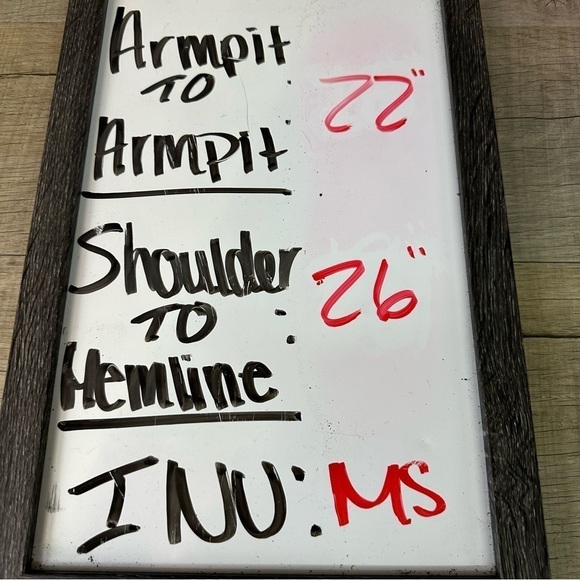 Armpit
TO : 22"
Armpit
Shoulder
TO : 26"
Hemline
INV: MS